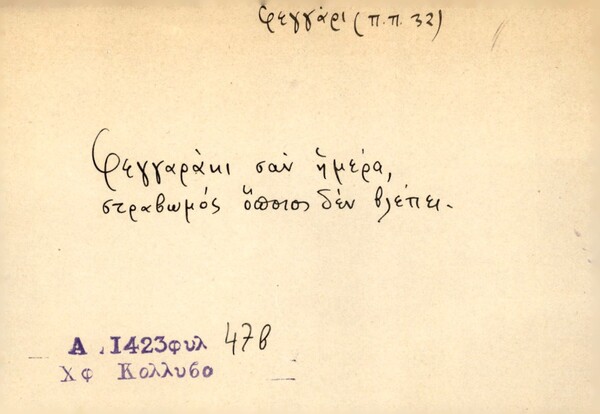 φεγγάρι (π.π. 32)
Φεγγαράκι σαν ἡμέρα,
στραβωμός ὅποιος δὲν βλέπει.
Α .1423φυλ 47β
Χφ Κολλυβο